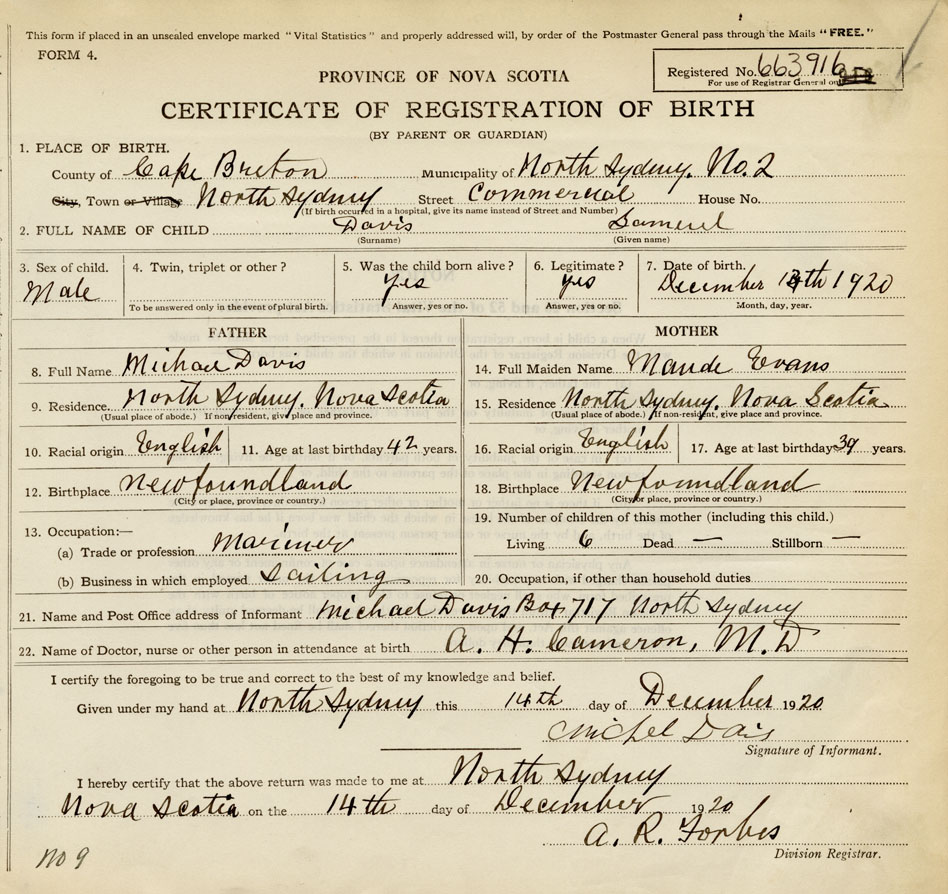 This form if placed in an unsealed envelope marked "Vital Statistics" and properly addressed will, by order of the Postmaster General pass through the Mails "FREE."
FORM 4.
Registered No. 663916
For use of Registrar General only
PROVINCE OF NOVA SCOTIA
CERTIFICATE OF REGISTRATION OF BIRTH
(BY PARENT OR GUARDIAN)
1. PLACE OF BIRTH.
County of Cape Breton Municipality of North Sydney. No. 2
City, Town or Village North Sydney Street Commercial House No.
(If birth occurred in a hospital, give its name instead of Street and Number)
2. FULL NAME OF CHILD Davis Samuel
(Surname) (Given name)
3. Sex of child. 4. Twin, triplet or other? 5. Was the child born alive? 6. Legitimate? 7. Date of birth.
Male yes yes December 13th 1920
To be answered only in the event of plural birth. Answer, yes or no. Answer, yes or no. Month, day, year.
FATHER
8. Full Name Michael Davis
9. Residence. North Sydney. Nova Scotia
(Usual place of abode.) If non-resident, give place and province.
10. Racial origin English 11. Age at last birthday 42 years.
12. Birthplace Newfoundland
(City or place, province or country.)
13. Occupation:—
(a) Trade or profession Mariner
(b) Business in which employed Sailing
MOTHER
14. Full Maiden Name Maude Evans
15. Residence North Sydney. Nova Scotia
(Usual place of abode.) If non-resident, give place and province.
16. Racial origin English 17. Age at last birthday 39 years.
18. Birthplace Newfoundland
(City or place, province or country.)
19. Number of children of this mother (including this child.)
Living 6 Dead — Stillborn —
20. Occupation, if other than household duties
21. Name and Post Office address of Informant Michael Davis Box 717 North Sydney
22. Name of Doctor, nurse or other person in attendance at birth A. H. Cameron, M.D
I certify the foregoing to be true and correct to the best of my knowledge and belief.
Given under my hand at North Sydney this 14th day of December 1920
Michel Dais
Signature of Informant.
I hereby certify that the above return was made to me at North Sydney
Nova Scotia on the 14th day of December 1920
A. R. Forbes
Division Registrar.
No 9